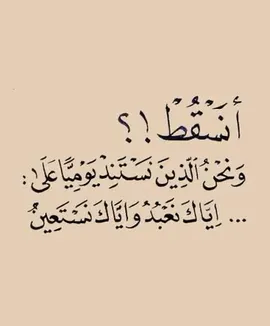 أنَسْقُطْ !؟
وَنَحْنُ الَّذِينَ نَسْتَنِدُ يَوْمِيًّا عَلَى :
... اِيَّاكَ نَعْبُدُ وَايَّاكَ نَسْتَعِينُ